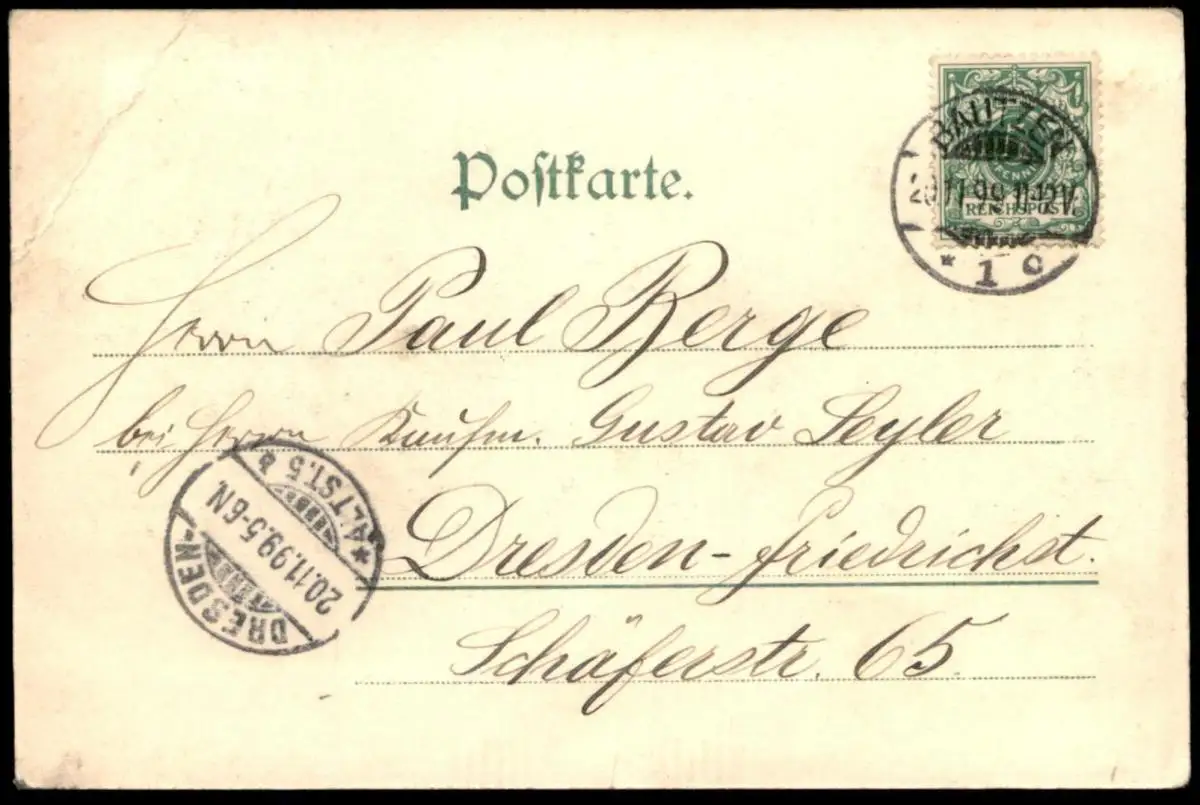 Postkarte.
BAUTZEN
20.11.99.11-12V.
* 1 c
PFENNIG
REICHSPOST
Herrn Paul Berge
bei Herrn Kaufm. Gustav Seyler
Dresden-Friedrichst.
Schäferstr. 65.
DRESDEN-
*ALTST. 5 a
20.11.99.5-6N.